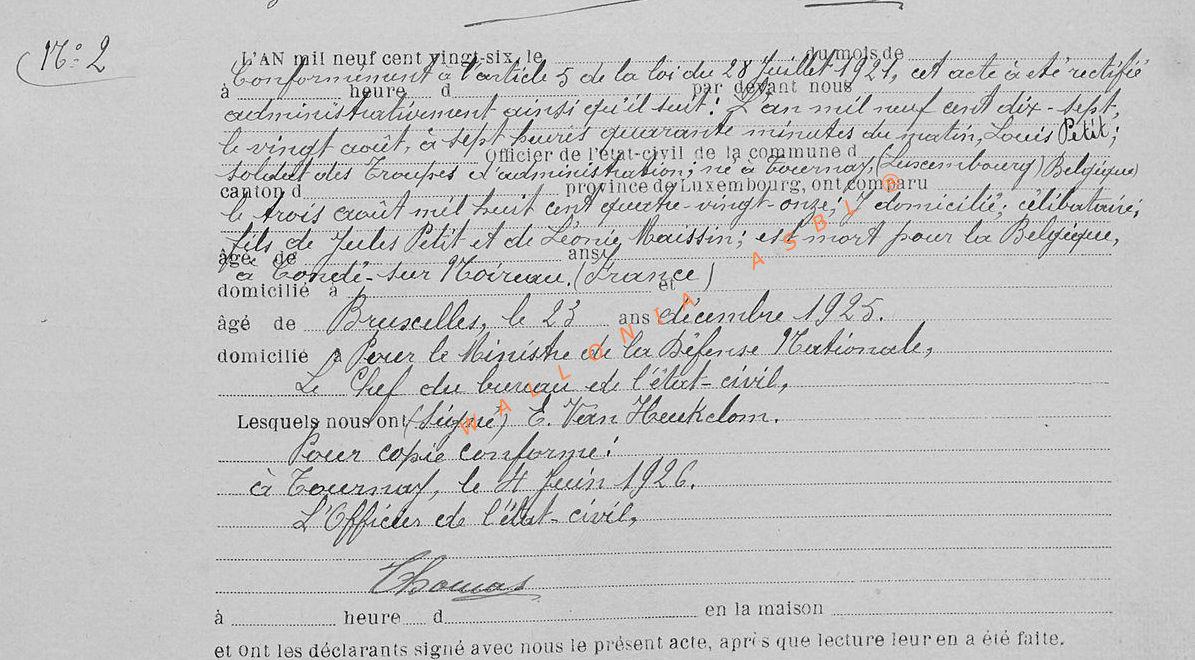 N° 2
L'AN mil neuf cent vingt-six, le du mois de
Conformément à l'article 5 de la loi du 28 Juillet 1921, cet acte a été rectifié
à heure d par devant nous
administrativement ainsi qu'il suit: L'an mil neuf cent dix-sept,
le vingt août, à sept heures quarante minutes du matin, Louis Petit;
Officier de l'état-civil de la commune d
soldat des Troupes d'administration; né à Tournay, (Luxembourg) Belgique)
canton d province de Luxembourg, ont comparu
le trois août mil huit cent quatre-vingt-onze; y domicilié; célibataire;
fils de Jules Petit et de Léonie Maissin; est mort pour la Belgique,
âgé de ans
à Condé-sur Noireau. (France)
domicilié à et
âgé de ans
Bruxelles, le 23 décembre 1925.
domicilié à
Pour le Ministre de la Défense Nationale,
Le Chef du bureau de l'état-civil,
Lesquels nous ont
(Signé) E. Van Heukelom.
Pour copie conforme:
à Tournay, le 4 Juin 1926.
L'Officier de l'état-civil,
Thomas
à heure d en la maison
et ont les déclarants signé avec nous le présent acte, après que lecture leur en a été faite.
WALLONIA ASBL ®